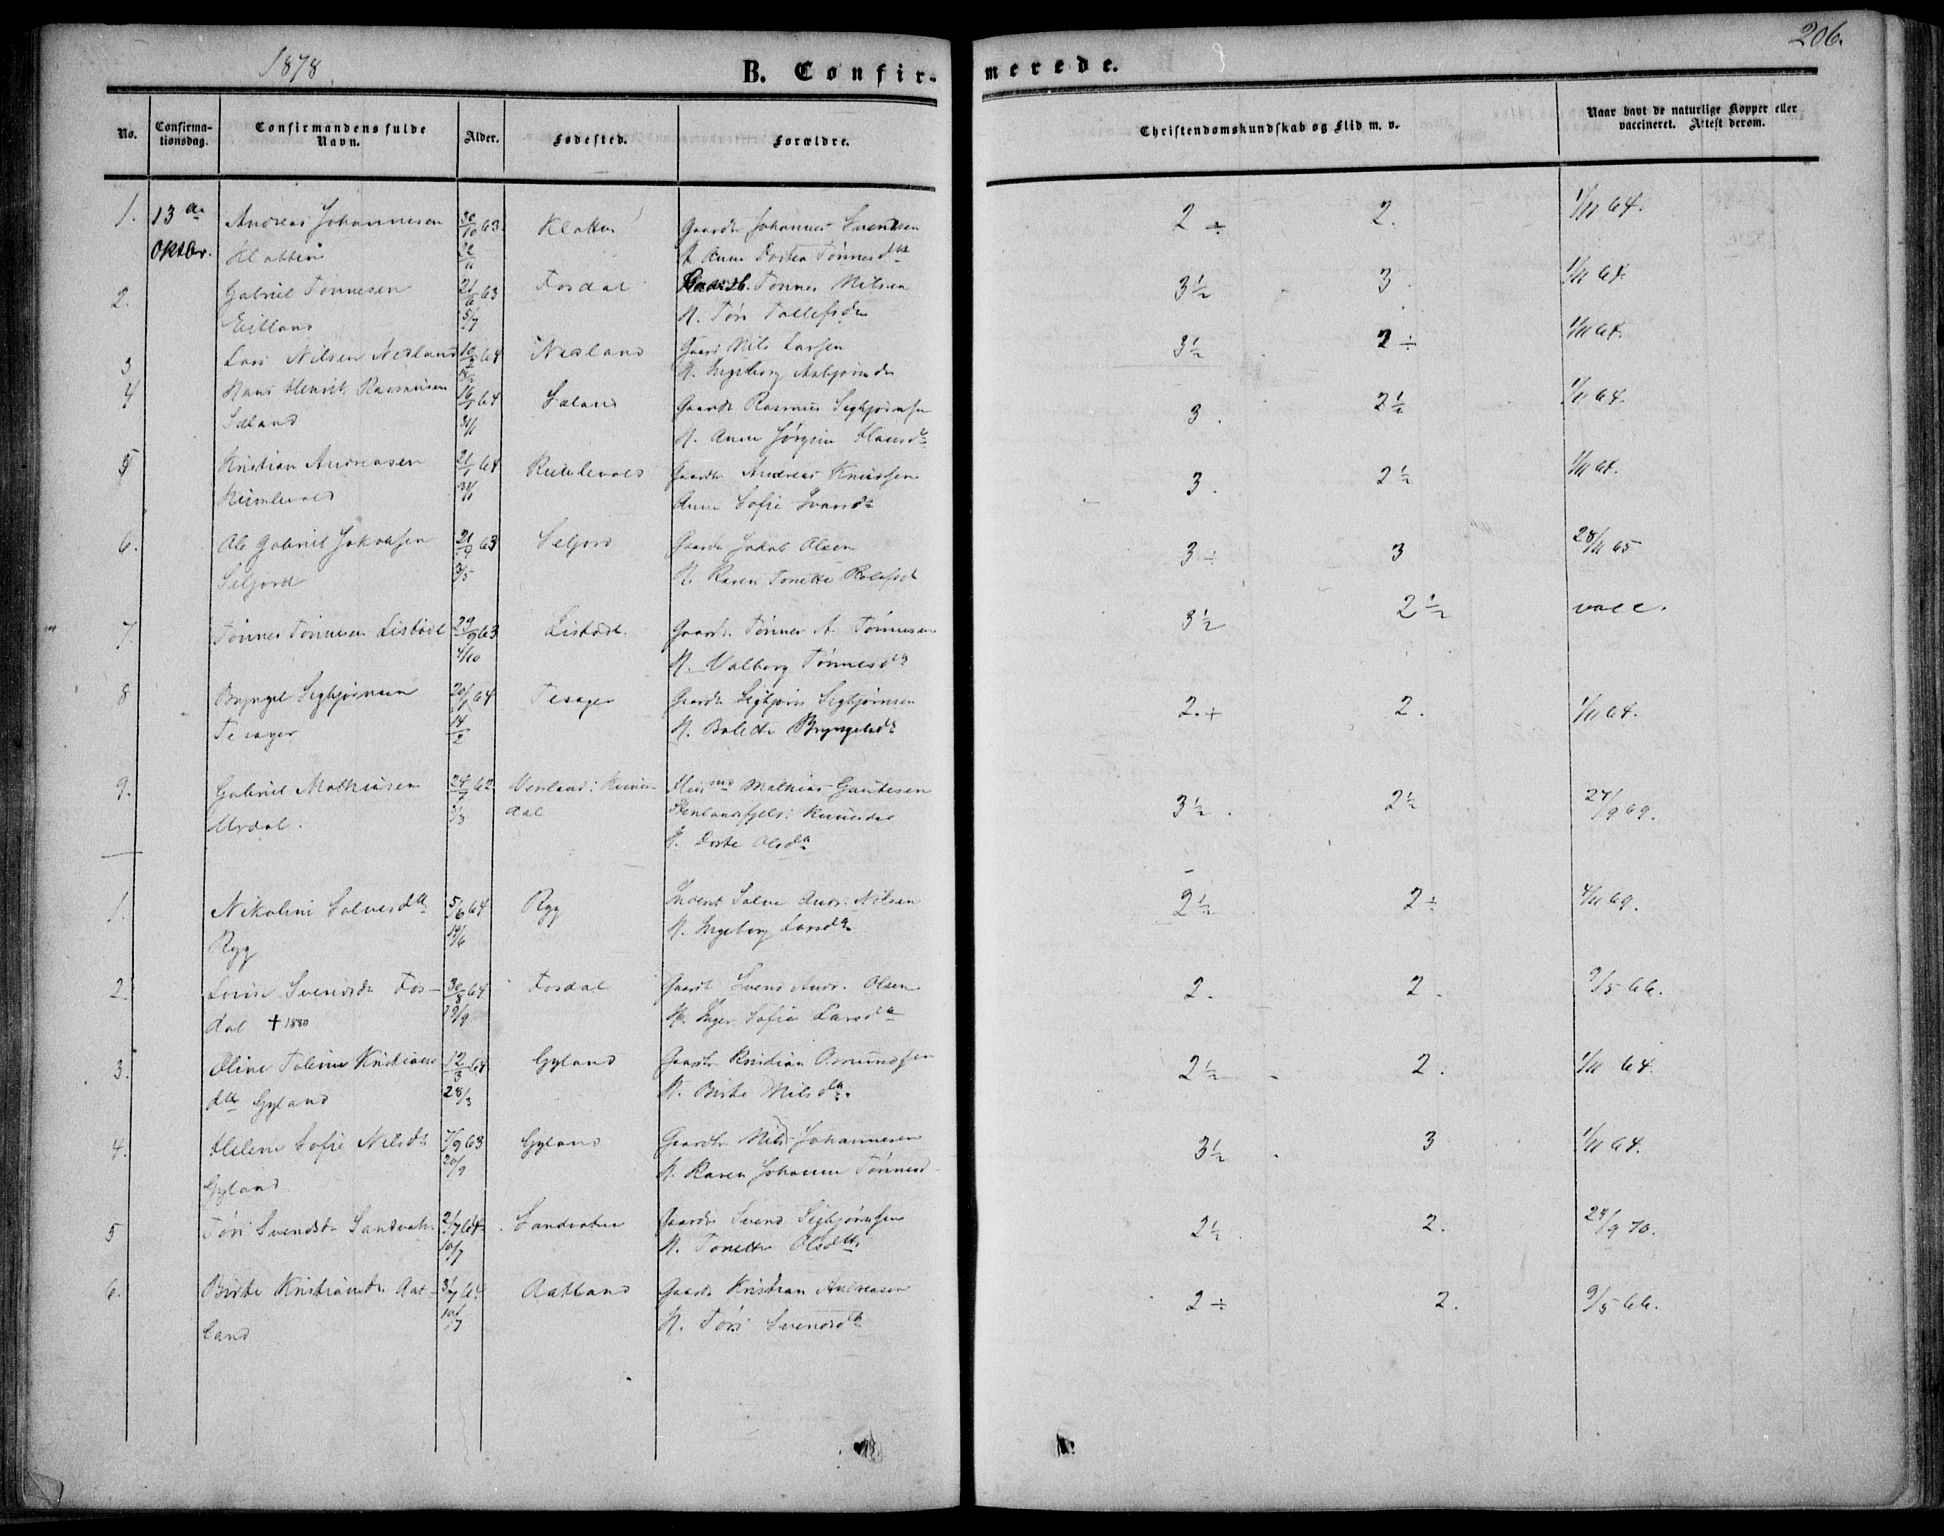 1878
B. Confirmerede.
206.
No.
Confirmationsdag.
Confirmandens fulde Navn.
Alder.
Fødested.
Forældre.
Christendomskundskab og Flid m. v.
Naar havt de naturlige Kopper eller vaccineret. Attest derom.
1. 13de Andreas Johannesen 30/10 63 Gaardb. Johannes Svendsen 2 ÷ 2. 1/11 64.
Oktbr. H. Anne Dortea Tønnesdtr
2. Gabriel Tønnesen 21/6 63 Fosdal Gaardb. Tønnes Nilsen 3½ 3. 1/11 64.
Eitland 5/7 H. Tøri Tollefsdtr
3 Lars Nilsen Nesland 64 Nesland Gaardb. Nils Larsen 3½ 2 ÷ 1/11 64.
H. Ingeborg Asbjørnsdtr
4 Hans Henrik Rasmusen 16/1 64 Sæland Gaardb. Rasmus Sigbjørnsen 3. 2½ 1/11 64.
Sæland 31/1 H. Anne Jørgine Hansdtr
5 Kristian Andreasen 21/1 64 Gaardb. Andreas Knudsen 3. 2½ 1/11 64.
31/1 Anne Sofie Ivarsdtr
6. Ole Gabriel Jakobsen 63 Seljord Gaardb. Jakob Olsen 3 ÷ 3 28/11 65
Seljord 3/5 H. Karen Tonette
7. Tønnes Tønnesen Listødl 29/9 63 Listødl. Gaardb. Tønnes A. Tønnesen 3½ 2½ vacc.
4/10 H. Valborg Tønnesdtr
8 Bryngel Sigbjørnsen 20/1 64 Tesager Gaardb. Sigbjørn Sigbjørnsen 2.+ 2. 1/11 64.
Tesager 14/2 H. Bolette Bryngelsdtr
9. Gabriel Mathiasen 62 Mathias Gautesen 3½. 2½ 24/9 69.
Urdal. /3 dal
H. Dorte Olsdtr
1. Nikoline Salvesdtr 5/6 64 Ryg Salve Andr. Nilsen 2½ 2 ÷ 4/11 69.
Ryg 19/6 H. Ingeborg Larsdtr
2. Lovise Svendsdtr Fos- 30/8 64 Fosdal Gaardb. Svend Andr. Olsen 2. 2. 9/5 66.
dal + 1880 H. Inger Sofie Larsdtr
3. Oline Tolene Kristians 12/3 64 Gyland Gaardb. Kristian Osmundsen 2½ 2. 1/11 64.
dtr Gyland 28/3 H. Birte Nilsdtr.
4. Helene Sofie Nilsdtr 7/9 63 Gyland Gaardb. Nils Johannesen 3½ 3 1/11 64.
Gyland 20/9 H. Karen Johanne Tønnesd
5 Tøri Svendsdtr Sandvatn 2/7 64 Sandvatn Gaardb. Svend Sigbjørnsen 2½. 2. 24/9 70.
10/7 H. Tonette Olsdtr
6. Birte Kristiansdtr Aat- 3/7 64 Aatland Gaardb. Kristian Andreasen 2 ÷ 2. 9/5 66.
land 10/7 H. Tøri Svendsdtr